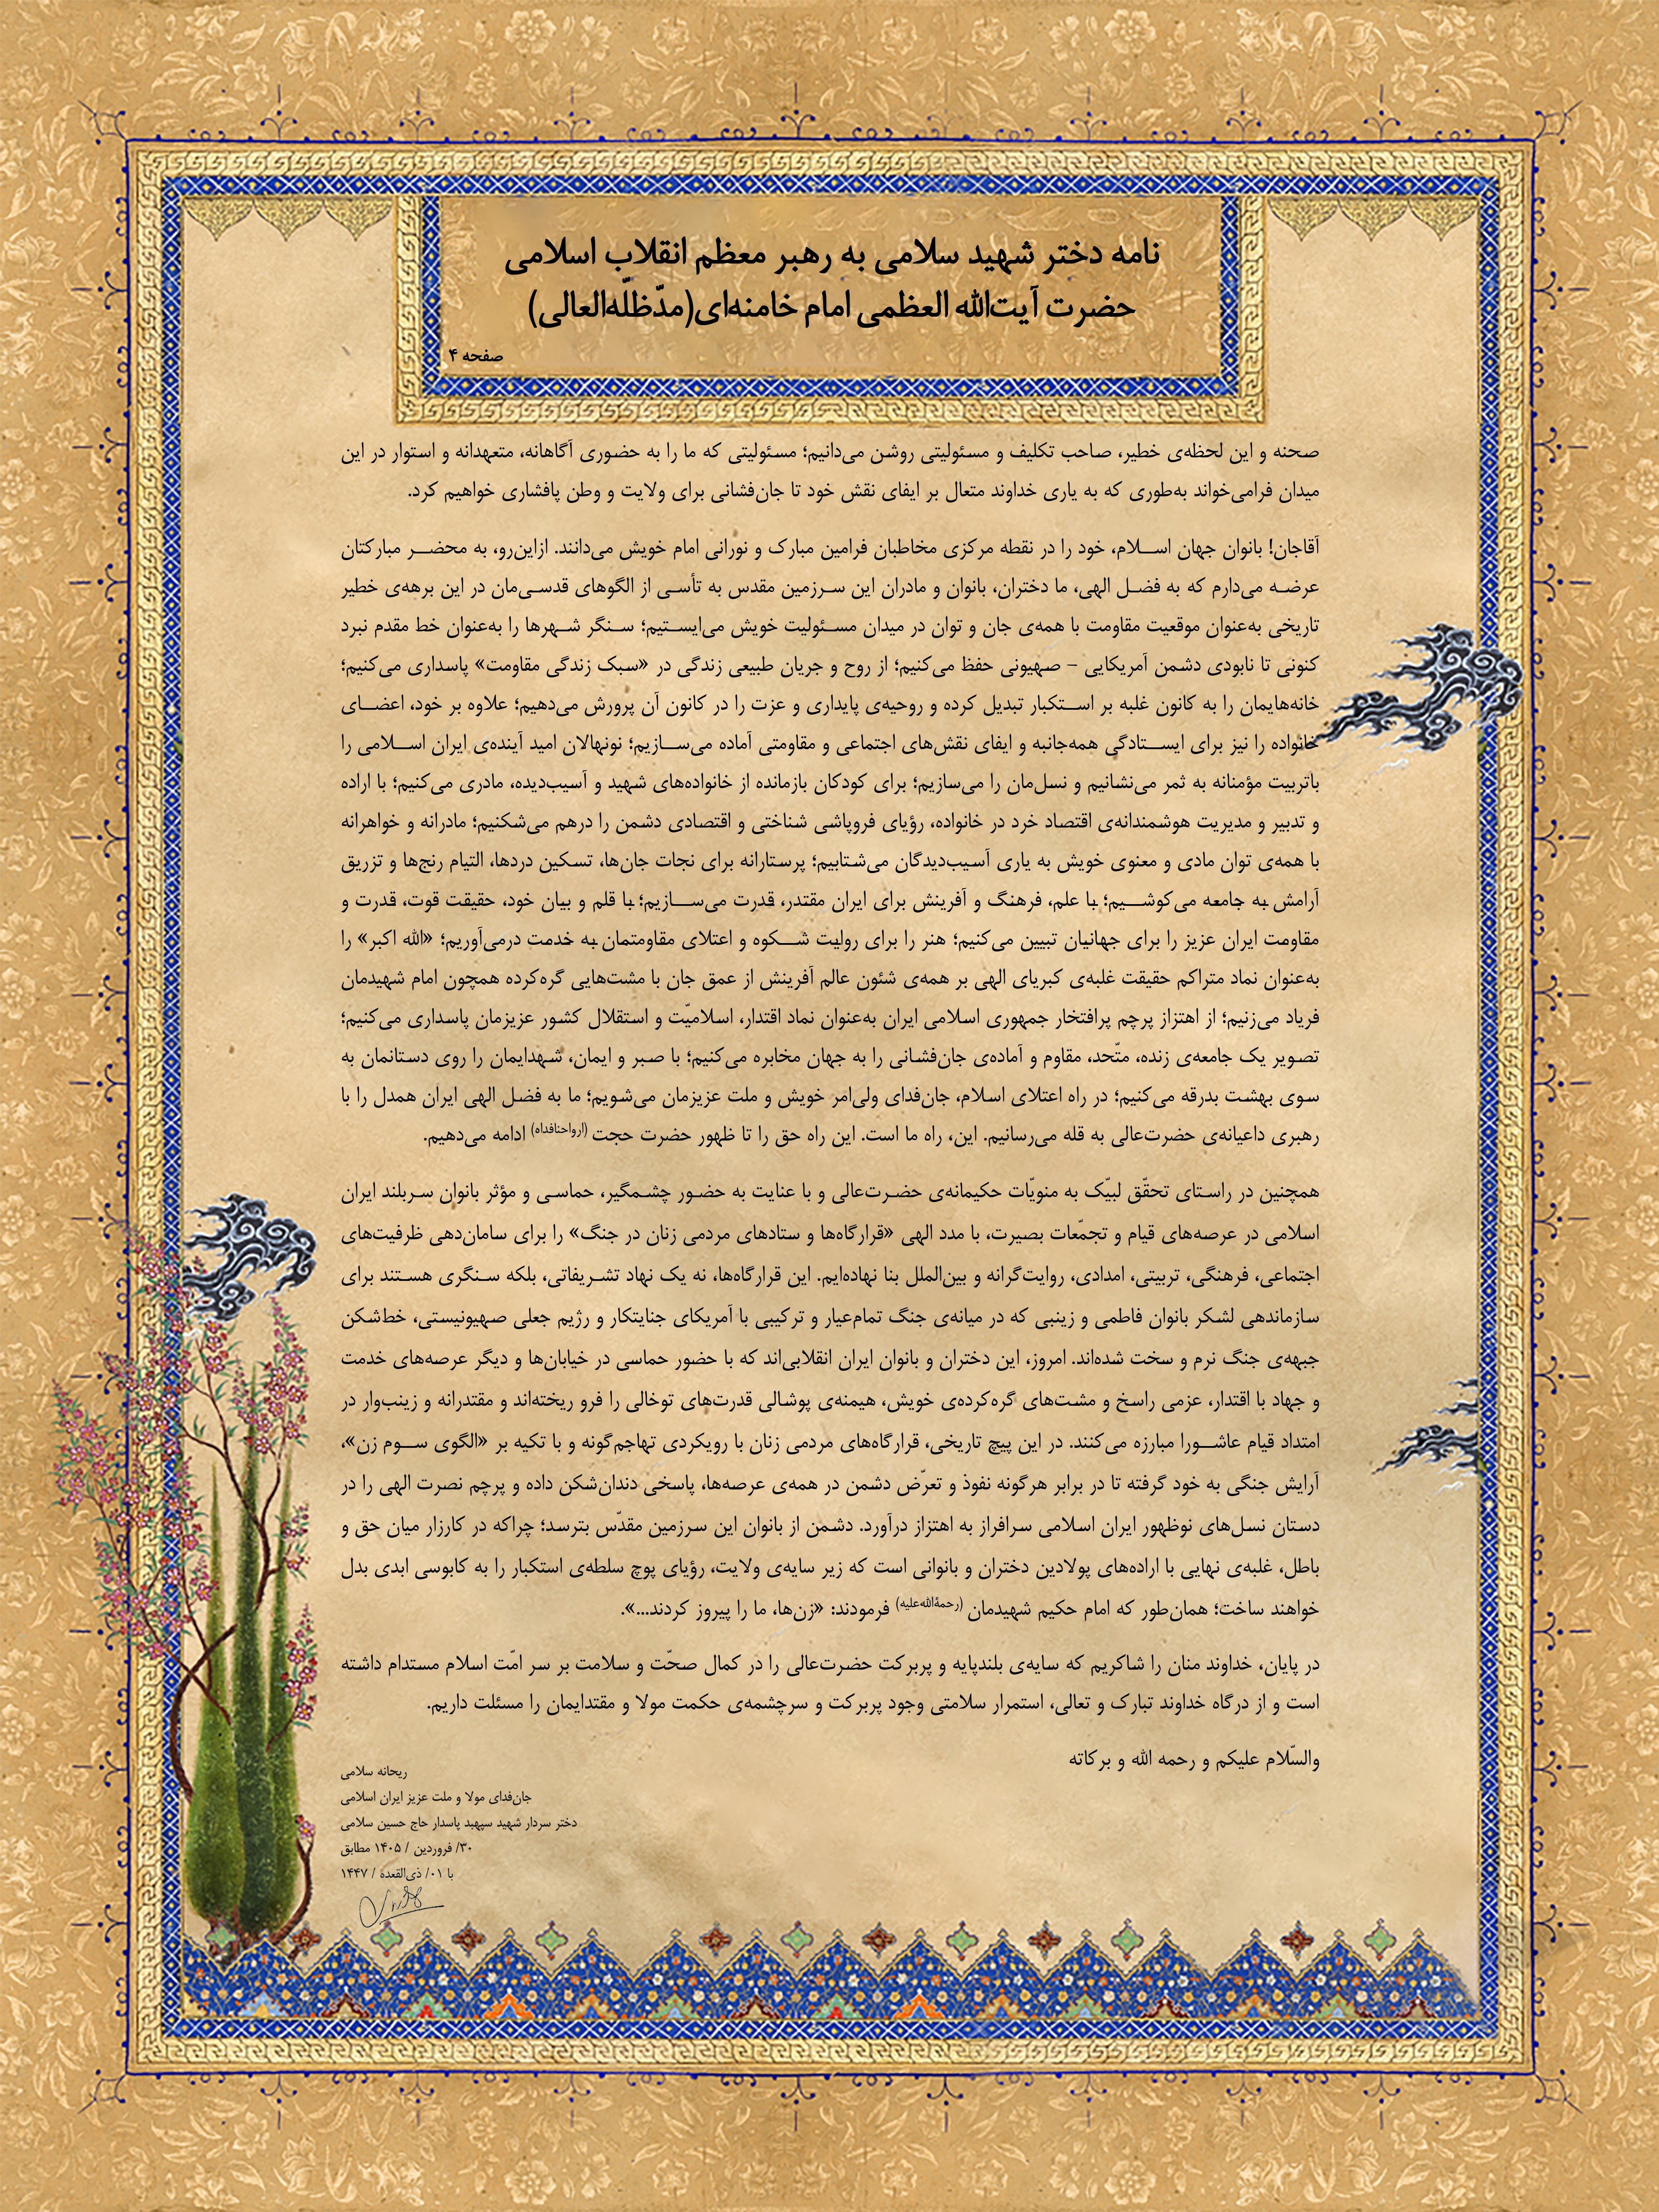 نامه دختر شهید سلامی به رهبر معظم انقلاب اسلامی
حضرت آیت‌الله العظمی امام خامنه‌ای(مدّظلّه‌العالی)
صفحه ۴
صحنه و این لحظه‌ی خطیر، صاحب تکلیف و مسئولیتی روشن می‌دانیم؛ مسئولیتی که ما را به حضوری آگاهانه، متعهدانه و استوار در این
میدان فرامی‌خواند به‌طوری که به یاری خداوند متعال بر ایفای نقش خود تا جان‌فشانی برای ولایت و وطن پافشاری خواهیم کرد.
آقاجان! بانوان جهان اسلام، خود را در نقطه مرکزی مخاطبان فرامین مبارک و نورانی امام خویش می‌دانند. ازاین‌رو، به محضر مبارکتان
عرضه می‌دارم که به فضل الهی، ما دختران، بانوان و مادران این سرزمین مقدس به تأسی از الگوهای قدسی‌مان در این برهه‌ی خطیر
تاریخی به‌عنوان موقعیت مقاومت با همه‌ی جان و توان در میدان مسئولیت خویش می‌ایستیم؛ سنگر شهرها را به‌عنوان خط مقدم نبرد
کنونی تا نابودی دشمن آمریکایی – صهیونی حفظ می‌کنیم؛ از روح و جریان طبیعی زندگی در «سبک زندگی مقاومت» پاسداری می‌کنیم؛
خانه‌هایمان را به کانون غلبه بر استکبار تبدیل کرده و روحیه‌ی پایداری و عزت را در کانون آن پرورش می‌دهیم؛ علاوه بر خود، اعضای
خانواده را نیز برای ایستادگی همه‌جانبه و ایفای نقش‌های اجتماعی و مقاومتی آماده می‌سازیم؛ نونهالان امید آینده‌ی ایران اسلامی را
باتربیت مؤمنانه به ثمر می‌نشانیم و نسل‌مان را می‌سازیم؛ برای کودکان بازمانده از خانواده‌های شهید و آسیب‌دیده، مادری می‌کنیم؛ با اراده
و تدبیر و مدیریت هوشمندانه‌ی اقتصاد خرد در خانواده، رؤیای فروپاشی شناختی و اقتصادی دشمن را درهم می‌شکنیم؛ مادرانه و خواهرانه
با همه‌ی توان مادی و معنوی خویش به یاری آسیب‌دیدگان می‌شتابیم؛ پرستارانه برای نجات جان‌ها، تسکین دردها، التیام رنج‌ها و تزریق
آرامش به جامعه می‌کوشیم؛ با علم، فرهنگ و آفرینش برای ایران مقتدر، قدرت می‌سازیم؛ با قلم و بیان خود، حقیقت قوت، قدرت و
مقاومت ایران عزیز را برای جهانیان تبیین می‌کنیم؛ هنر را برای روایت شکوه و اعتلای مقاومتمان به خدمت درمی‌آوریم؛ «الله اکبر» را
به‌عنوان نماد متراکم حقیقت غلبه‌ی کبریای الهی بر همه‌ی شئون عالم آفرینش از عمق جان با مشت‌هایی گره‌کرده همچون امام شهیدمان
فریاد می‌زنیم؛ از اهتزاز پرچم پرافتخار جمهوری اسلامی ایران به‌عنوان نماد اقتدار، اسلامیّت و استقلال کشور عزیزمان پاسداری می‌کنیم؛
تصویر یک جامعه‌ی زنده، متّحد، مقاوم و آماده‌ی جان‌فشانی را به جهان مخابره می‌کنیم؛ با صبر و ایمان، شهدایمان را روی دستانمان به
سوی بهشت بدرقه می‌کنیم؛ در راه اعتلای اسلام، جان‌فدای ولی‌امر خویش و ملت عزیزمان می‌شویم؛ ما به فضل الهی ایران همدل را با
رهبری داعیانه‌ی حضرت‌عالی به قله می‌رسانیم. این، راه ما است. این راه حق را تا ظهور حضرت حجت (ارواحنافداه) ادامه می‌دهیم.
همچنین در راستای تحقّق لبیّک به منویّات حکیمانه‌ی حضرت‌عالی و با عنایت به حضور چشمگیر، حماسی و مؤثر بانوان سربلند ایران
اسلامی در عرصه‌های قیام و تجمّعات بصیرت، با مدد الهی «قرارگاه‌ها و ستادهای مردمی زنان در جنگ» را برای سامان‌دهی ظرفیت‌های
اجتماعی، فرهنگی، تربیتی، امدادی، روایت‌گرانه و بین‌الملل بنا نهاده‌ایم. این قرارگاه‌ها، نه یک نهاد تشریفاتی، بلکه سنگری هستند برای
سازماندهی لشکر بانوان فاطمی و زینبی که در میانه‌ی جنگ تمام‌عیار و ترکیبی با آمریکای جنایتکار و رژیم جعلی صهیونیستی، خط‌شکن
جبهه‌ی جنگ نرم و سخت شده‌اند. امروز، این دختران و بانوان ایران انقلابی‌اند که با حضور حماسی در خیابان‌ها و دیگر عرصه‌های خدمت
و جهاد با اقتدار، عزمی راسخ و مشت‌های گره‌کرده‌ی خویش، هیمنه‌ی پوشالی قدرت‌های توخالی را فرو ریخته‌اند و مقتدرانه و زینب‌وار در
امتداد قیام عاشورا مبارزه می‌کنند. در این پیچ تاریخی، قرارگاه‌های مردمی زنان با رویکردی تهاجم‌گونه و با تکیه بر «الگوی سوم زن»،
آرایش جنگی به خود گرفته تا در برابر هرگونه نفوذ و تعرّض دشمن در همه‌ی عرصه‌ها، پاسخی دندان‌شکن داده و پرچم نصرت الهی را در
دستان نسل‌های نوظهور ایران اسلامی سرافراز به اهتزاز درآورد. دشمن از بانوان این سرزمین مقدّس بترسد؛ چراکه در کارزار میان حق و
باطل، غلبه‌ی نهایی با اراده‌های پولادین دختران و بانوانی است که زیر سایه‌ی ولایت، رؤیای پوچ سلطه‌ی استکبار را به کابوسی ابدی بدل
خواهند ساخت؛ همان‌طور که امام حکیم شهیدمان (رحمةالله‌علیه) فرمودند: «زن‌ها، ما را پیروز کردند...».
در پایان، خداوند منان را شاکریم که سایه‌ی بلندپایه و پربرکت حضرت‌عالی را در کمال صحّت و سلامت بر سر امّت اسلام مستدام داشته
است و از درگاه خداوند تبارک و تعالی، استمرار سلامتی وجود پربرکت و سرچشمه‌ی حکمت مولا و مقتدایمان را مسئلت داریم.
والسّلام علیکم و رحمه الله و برکاته
ریحانه سلامی
جان‌فدای مولا و ملت عزیز ایران اسلامی
دختر سردار شهید سپهبد پاسدار حاج حسین سلامی
۳۰/ فروردین / ۱۴۰۵ مطابق
با ۰۱/ ذی‌القعده / ۱۴۴۷